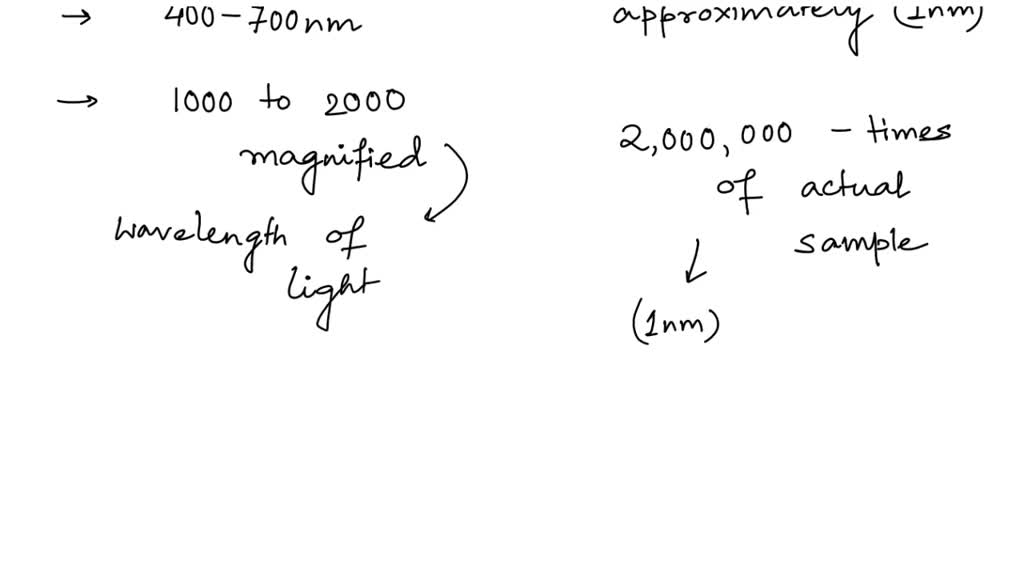 → 400-700nm
→ 1000 to 2000
magnified
wavelength of
light
approximately (1nm)
2,000,000 - times
of actual
sample
↓
(1nm)